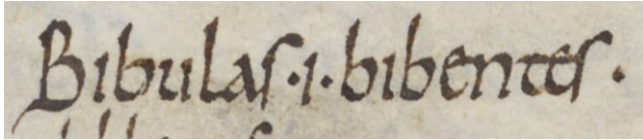 Bibulas·i·bibentes·